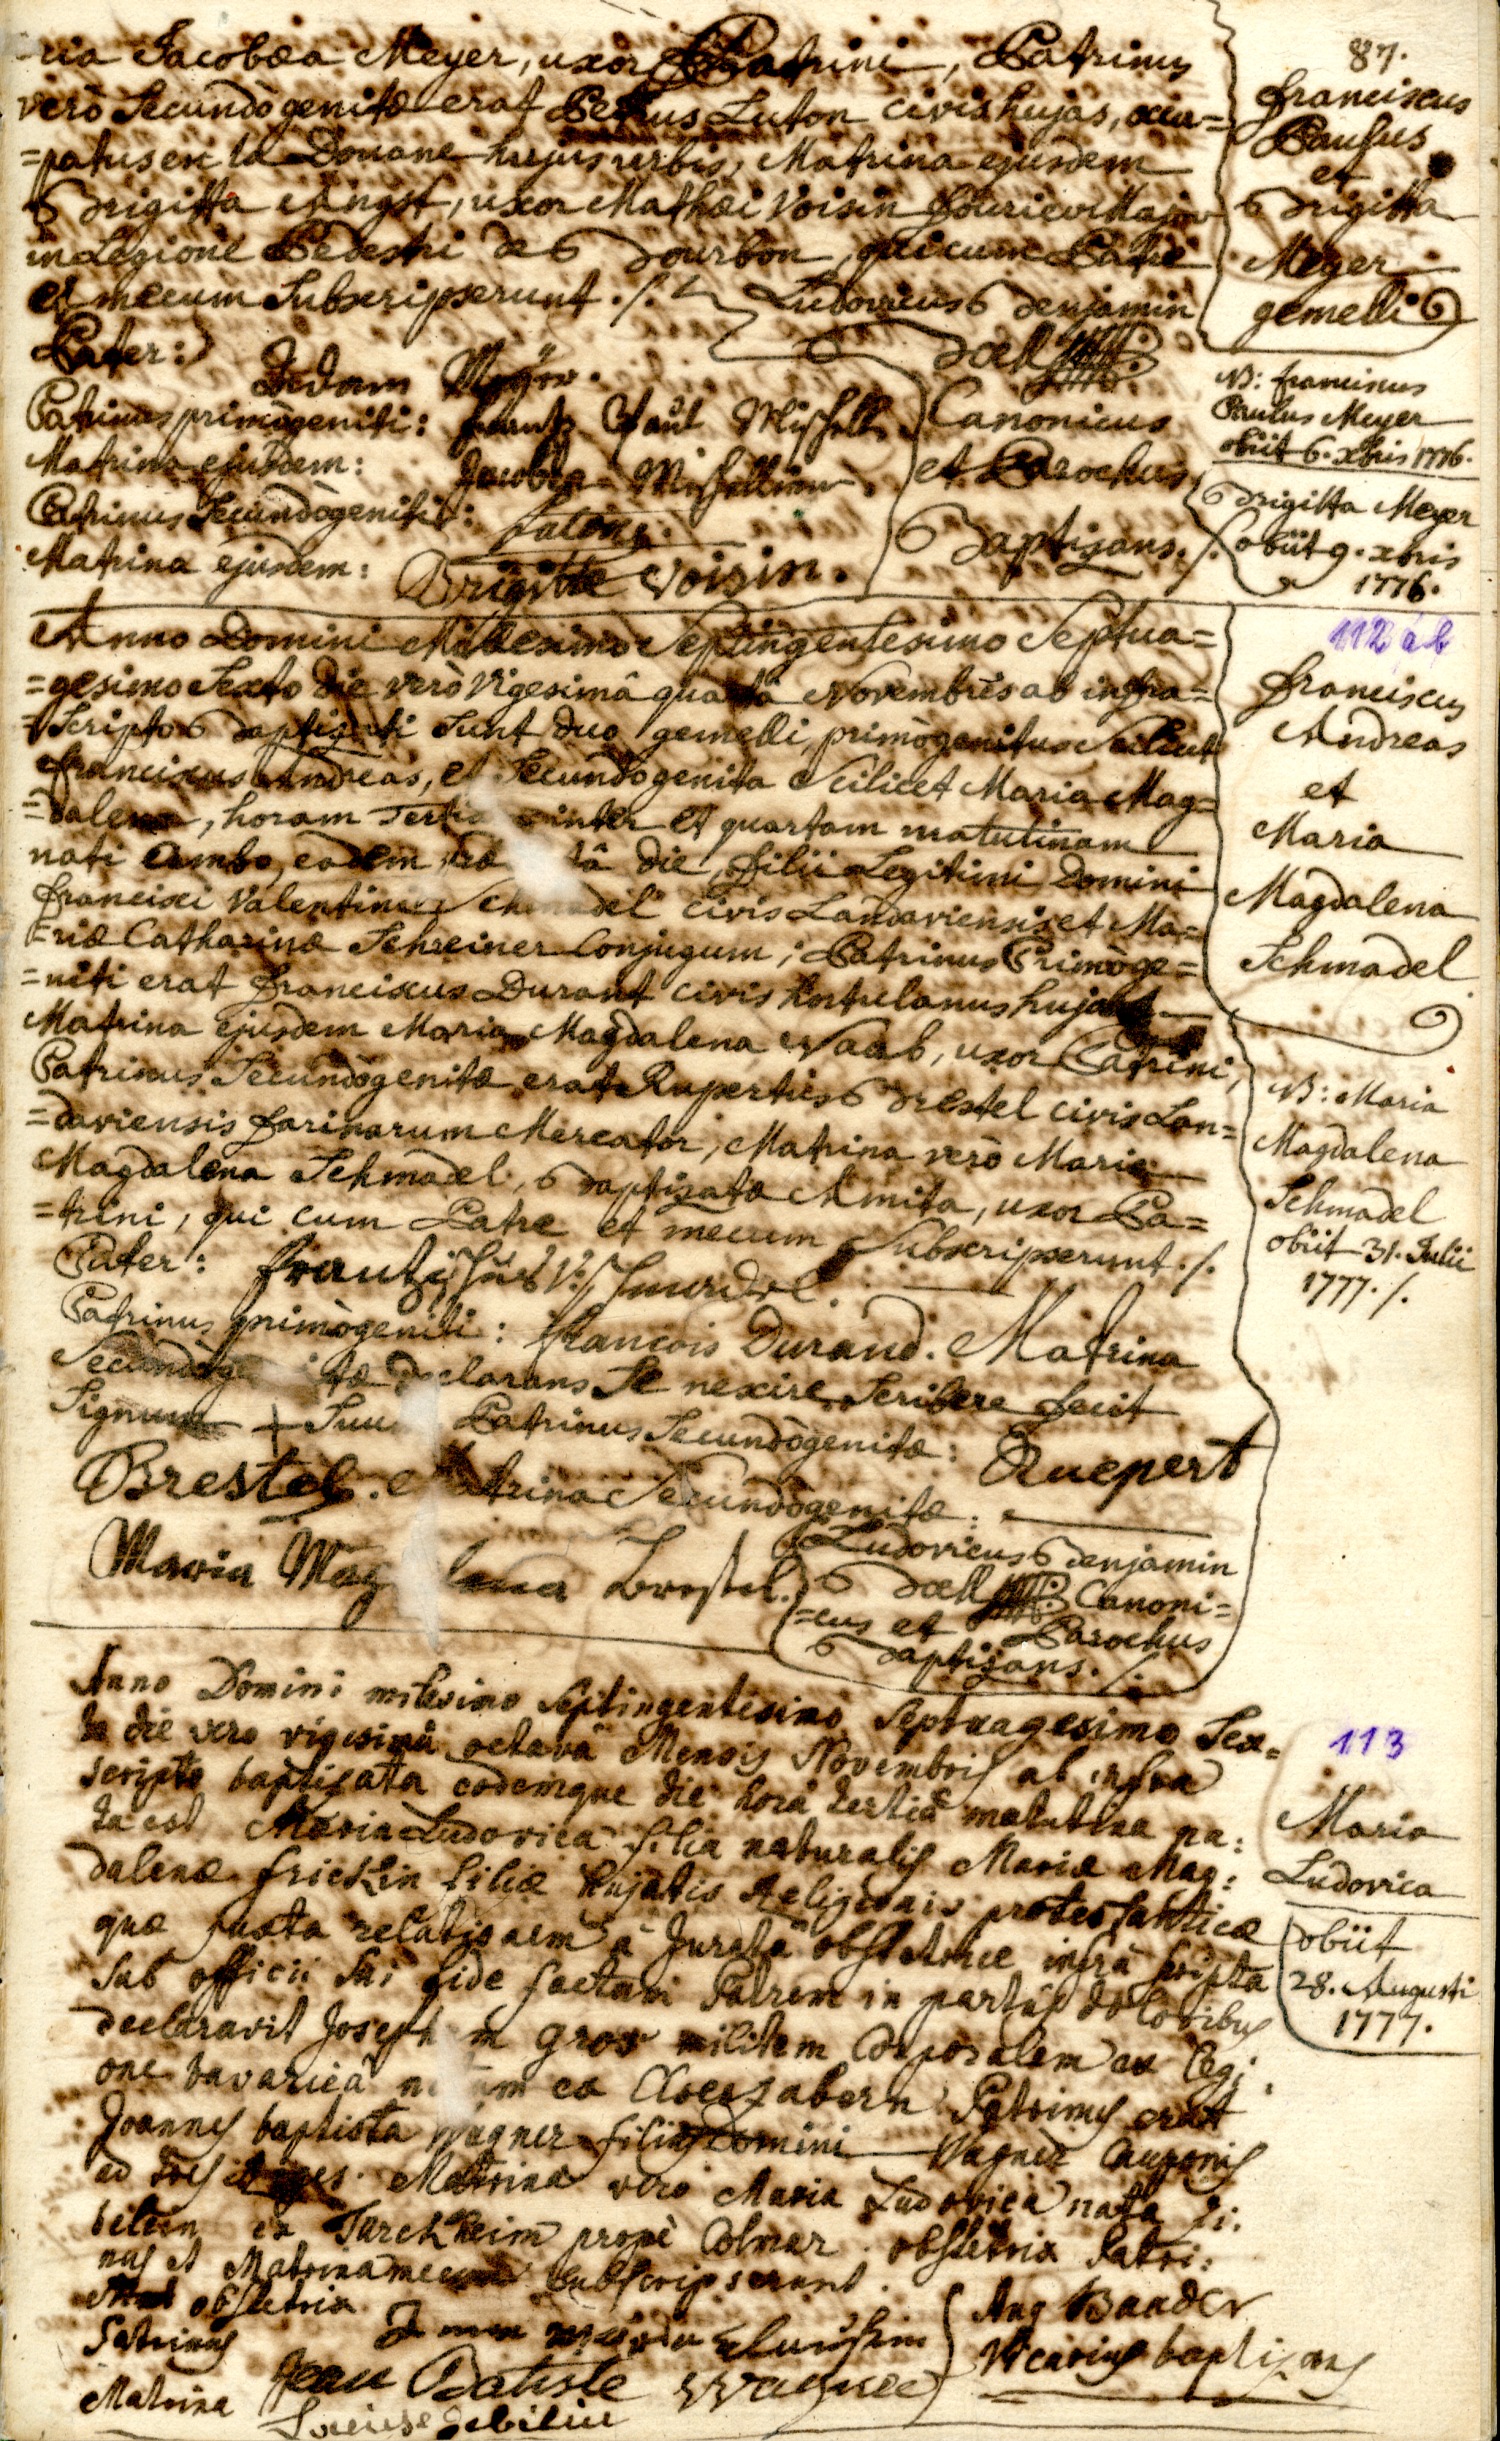 -ria Jacobæa Meyer, uxor Patrini, Patrinus
verò Secundògenitæ erat Petrus Luton civis hujas, occu=
=patus en la Douane hujus urbis, Matrina ejusdem
Brigitta Angst, uxor Mathæi Voisin fourier Major
in Legione Pedestri de Bourbon, qui cum Patre
et mecum Subscripserunt ./. Ludovicus Benjamin
Pater: Adam
Canonicus
Patrinus primògeniti: Paul
et Parochus
Matrina ejusdem: Jacobea
Patrinus Secundògenitæ:
Baptizans ./.
Matrina ejusdem: Brigitte Voisin.
87.
franciscus
Paulus
et
Brigitta
Meyer
gemelli
NB: franciscus
Paulus Meyer
obiit 6. xbris 1776.
Brigitta Meyer
obiit 9. xbris
1776.
Anno Domini Millesimo Septingentesimo Septua=
=gesimo Sexto die verò Vigesimâ quartâ Novembris ab infra=
=Scripto Baptizati Sunt duo gemelli, primògenitus Scilicet
franciscus Andreas, et Secundògenita Scilicet Maria Mag=
=dalena, horam Tertiam inter et quartam matutinam
nati Ambo, eâdem die, filii Legitimi Domini
francisci Valentini Schmadel civis Landaviensis et Ma=
=riæ Catharinæ Schreiner Conjugum; Patrinus Primòge=
=niti erat franciscus Durant civis hortulanus hujas
Matrina ejusdem Maria Magdalena Naab, uxor Patrini,
Patrinus Secundògenitæ erat Rupertus Brestel civis Lan=
=daviensis farinarum Mercator, Matrina verò Maria
Magdalena Schmadel, Baptizatæ Amita, uxor Pa=
=trini, qui cum Patre et mecum Subscripserunt ./.
Pater:
Patrinus primògeniti: francois Durand. Matrina
declarans Se nescire Scribere fecit
Signum + Patrinus Secundògenitæ: Ruepert
Brestel. Matrina Secundògenitæ:
Maria Magdalena
Ludovicus Benjamin
Canoni=
=cus et Parochus
Baptizans ./.
112 a b
franciscus
Andreas
et
Maria
Magdalena
Schmadel
NB: Maria
Magdalena
Schmadel
obiit 31. Julii
1777. /.
Anno Domini milesimo Septingentesimo Septuagesimo Sex=
to die vero vigesimâ octavâ Mensis Novembris ab infra
scripto baptizata eodemque die horâ tertiâ matutina na:
ta est Maria Ludovica filia naturalis Mariæ Mag:
dalenæ frickhin filiæ hujatis Religionis protestanticæ
quæ juxta relationem à Juratâ obstetrice infrà scripta
sub officii sui fide factam Patrem in partûs doloribus
declaravit Josephum Gros militem Corporalem ex legi:
one bavaricâ ex Patrinus erat
Joannes baptista Wagner filius Domini Wagner Cauponis
ad tres Matrina vero Maria Ludovica nata Zi:
belin ex Turckheim propè Colmar. obstetrix Patri:
nus et Matrina mecum Subscripserunt.
obstetrix
Patrinus Jean Batiste Wagner
Matrina
Aug Baader
Vicarius baptizans
113
Maria
Ludovica
obiit
28. Augusti
1777.